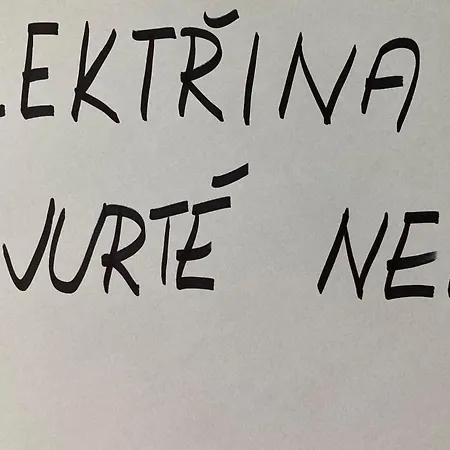 LEKTŘINA
JURTÉ NE